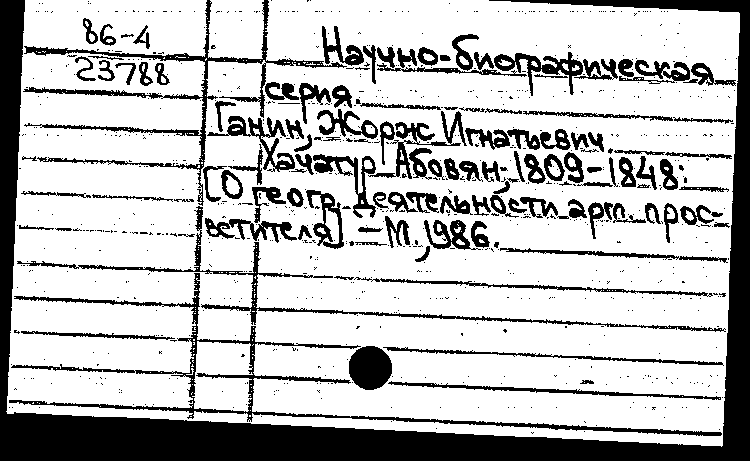 86-4
23788
Научно-биографическая
серия.
Ганин, Жорж Игнатьевич.
Хачатур Абовян. 1809-1848:
[О геогр. деятельности арт. прос-
ветителя]. - М., 1986.